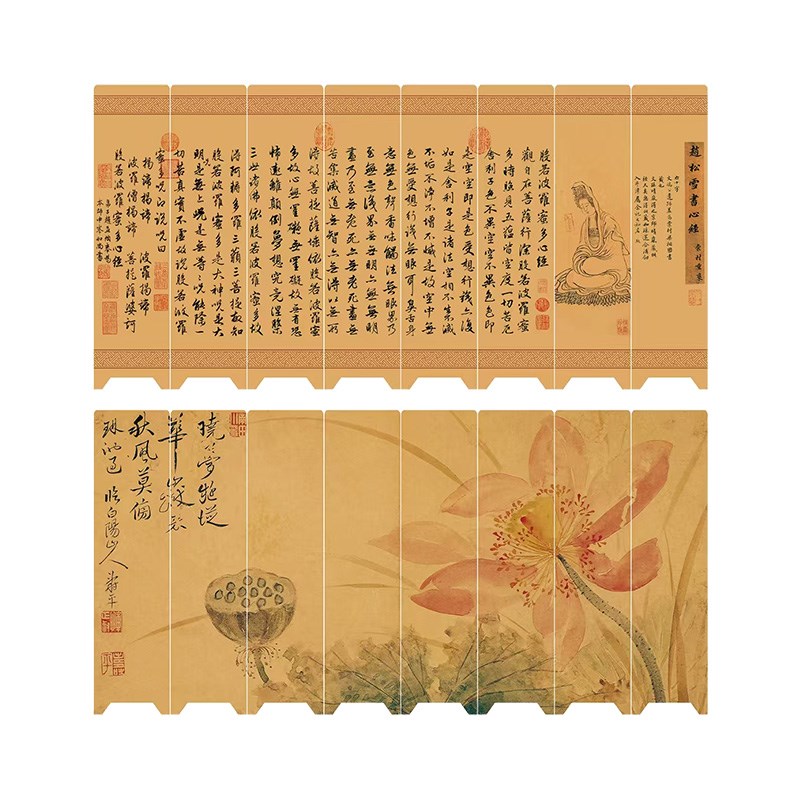 趙松雪書心經
般若波羅蜜多心經
觀自在菩薩行深般若波羅蜜
多時照見五蘊皆空度一切苦厄
舍利子色不異空空不異色色即
是空空即是色受想行識亦復
如是舍利子是諸法空相不生滅
不垢不淨不增不減是故空中無
色無受想行識無眼耳鼻舌身
意無色聲香味觸法無眼界乃
至無意識界無無明亦無無明
盡乃至無老死亦無老死盡無
苦集滅道無智亦無得以無所
得故菩提薩埵依般若波羅蜜
多故心無罣礙無罣礙故無有恐
怖遠離顛倒夢想究竟涅槃
三世諸佛依般若波羅蜜多故
得阿耨多羅三藐三菩提故知
般若波羅蜜多是大神咒是大
明咒是無上咒是無等等咒能除一
切苦真實不虛故說般若波羅
蜜多咒即說咒曰
揭諦揭諦 波羅揭諦
波羅僧揭諦 菩提薩婆訶
般若波羅蜜多心經
弟子趙孟頫奉為
本師中峰和尚書
曉夢從
華山
秋風莫
臨白陽山人 壽平